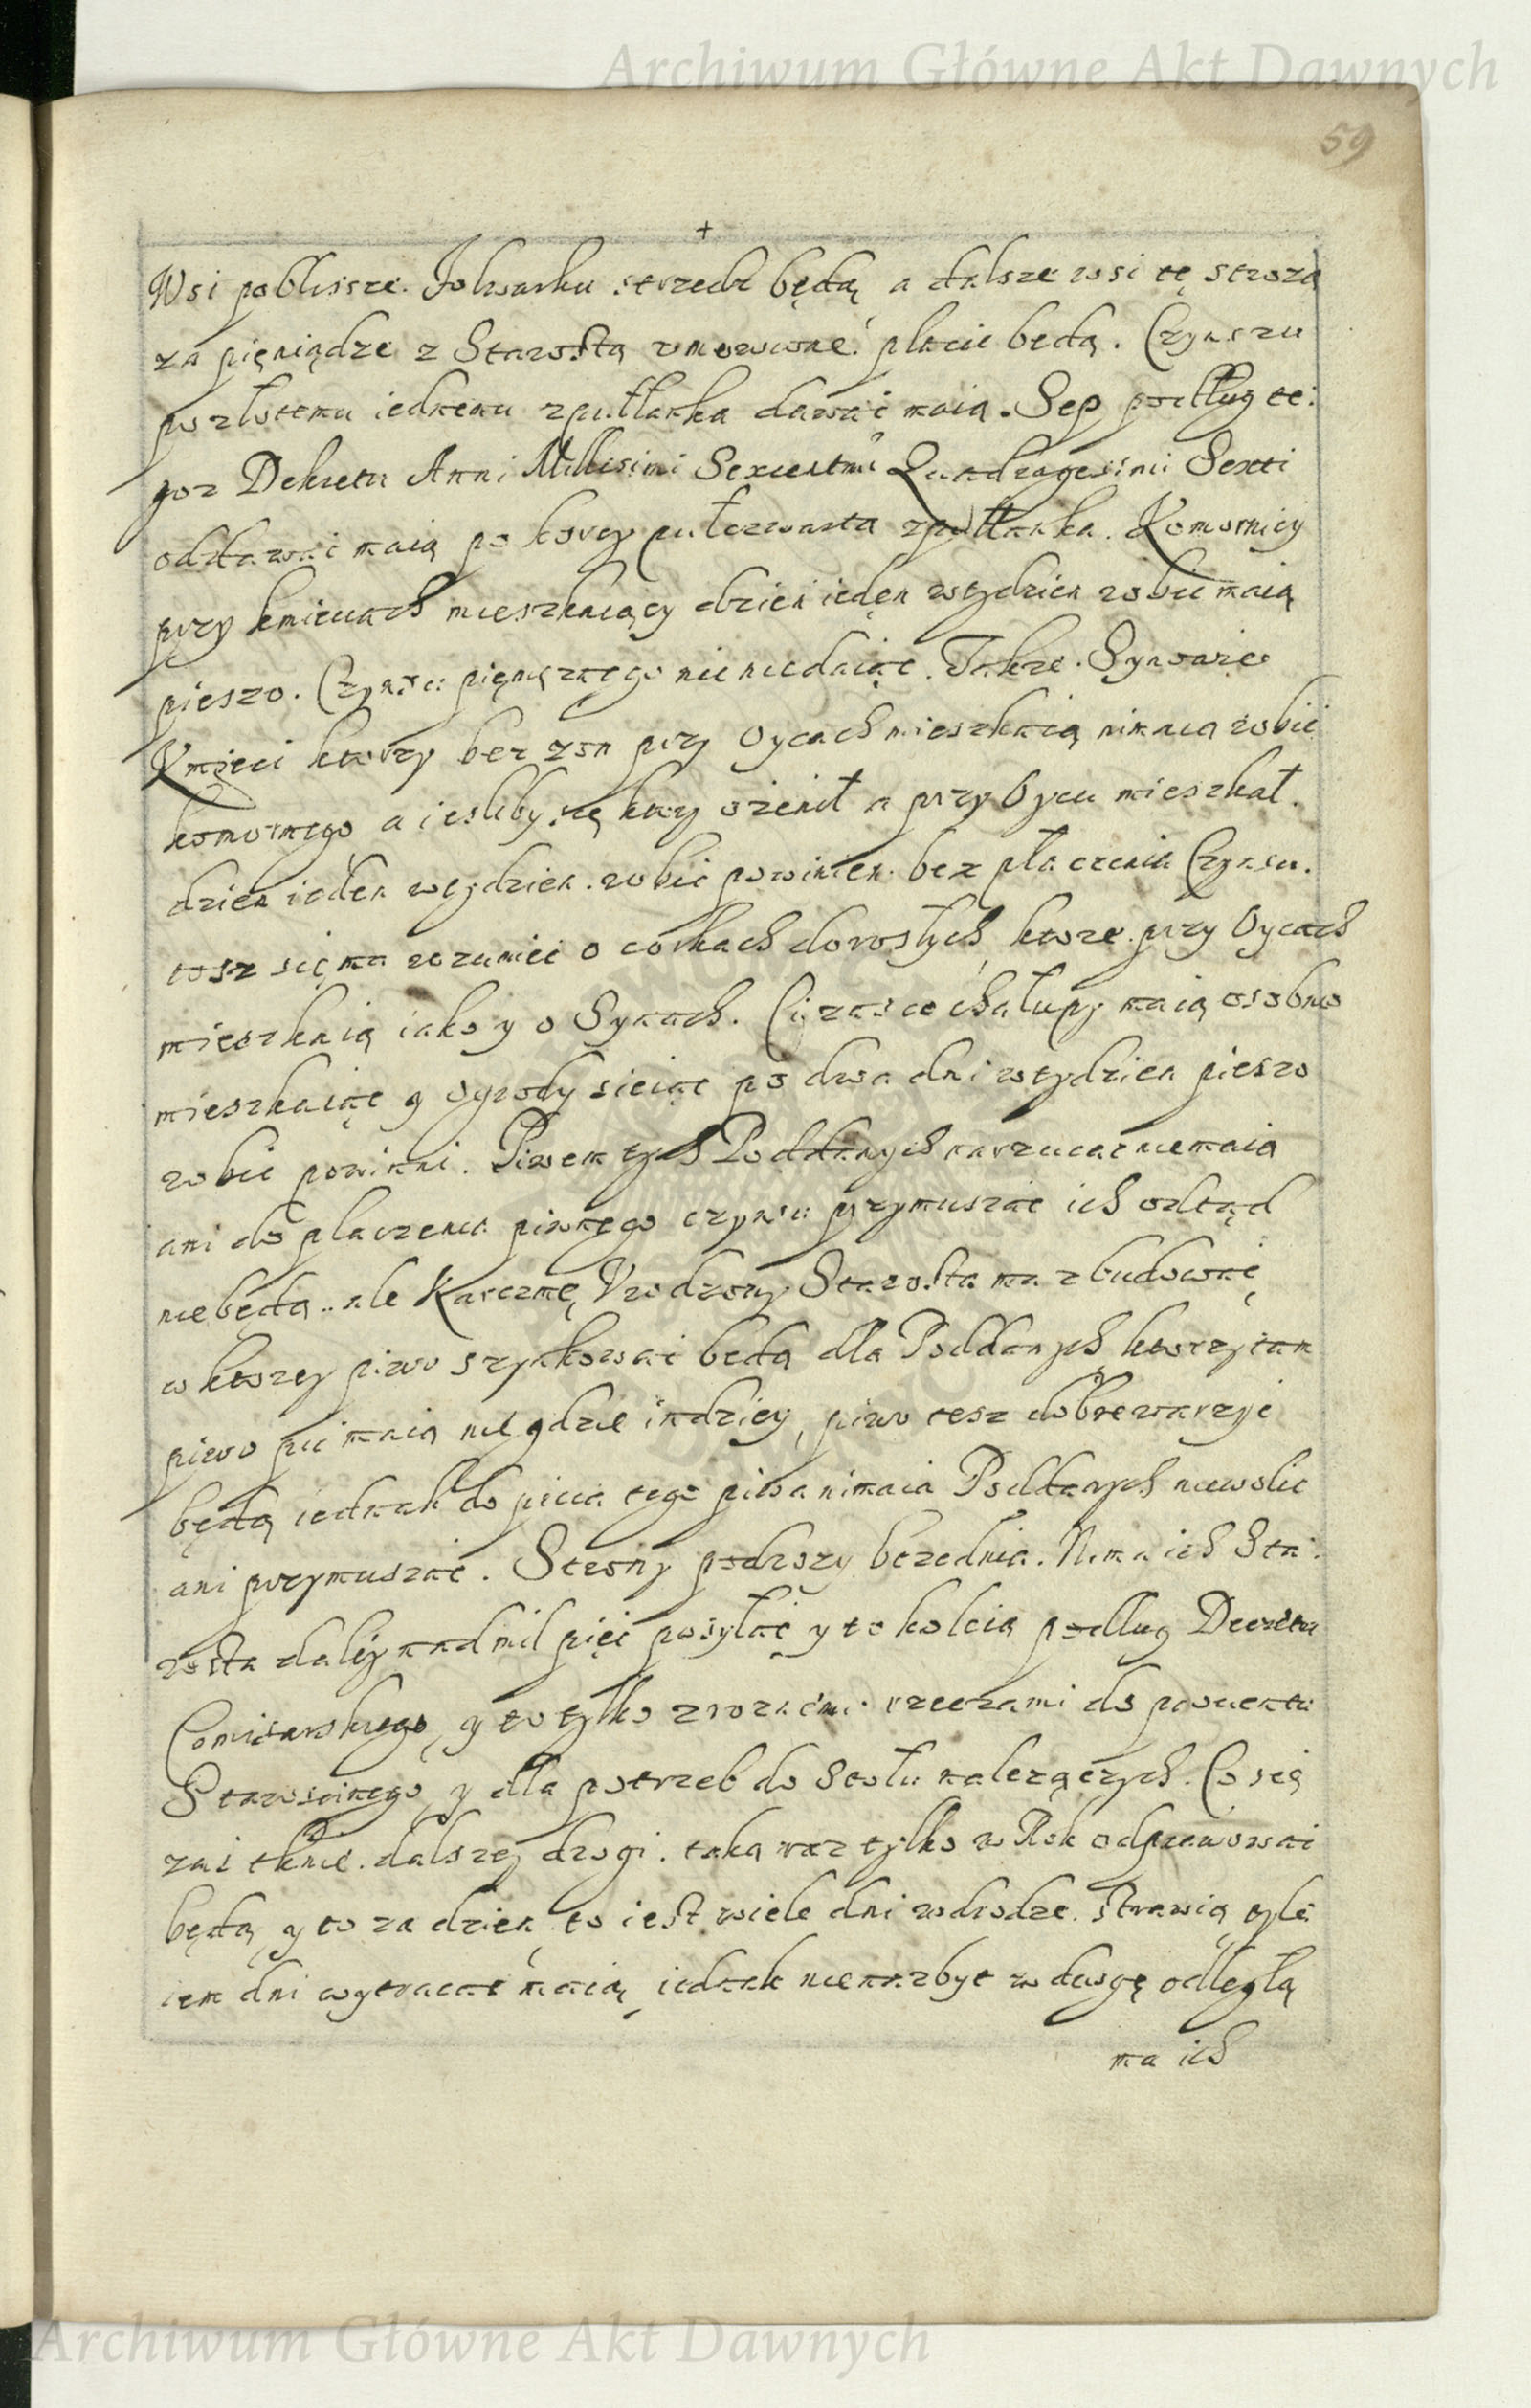 Archiwum Główne Akt Dawnych
59
+
Wsi pobliszsze Folwarku strzedz będą a dalsze wsi tę strożą
za pięniądze z Starostą vmowione płacic będą. Czynszu
po złotemu iednemu z pułłanka dawac maią. Sep podług te:
goz Dekretu Anni Millesimi Sexcentmi Quadragesimi Sexti
oddawac maią po korcy pułczwarta z pułłanka. Komornicy
przy kmieciach mieszkaiący dzien ieden w tydzien robic maią
pieszo. Czynszu pięnięznego nic niedaiąc. Takze Synowie
Kmieci ktorzy bez zon przy Oycach mieszkaią nimaią robic
komornego a iesliby się ktory ozenił a przy Oycu mieszkał.
dzien ieden w tydzien robic powinien bez płaczenia Czynszu.
tosz się ma rozumiec o corkach dorosłych ktore przy Oycach
mieszkaią iako y o Synach. Ci zas co chałupy maią osobno
mieszkaiąc y ogrody sieiąc po dwa dni w tydzien pieszo
robic powinni. Piwem tych Poddanych narzucac niemaią
ani do placzenia piwnego czynszu przymuszac ich odtąd
niebędą. ale Karczmę Vrodzony Starosta ma zbudowac
w ktorey piwo szynkowac będą dla Poddanych ktorzy tam
piwo pic maią nie gdzie indziey, piwo tesz dobre warzyc
będą iednak do picia tego piwa nimaią Poddanych niewolic
ani przymuszac. Strony podrozy bezednia. Nima ich Sta:
rosta daley nad mil pięc posyłac y to koleią podług Decretu
Comisarskiego y to tylko z roznemi rzeczami do prowentu
Staroscinego y dla potrzeb do Stołu nalezących. Co się
zas tknie dalszey drogi. taką raz tylko w Rok odprawowac
będą y to za dzien to iest wiele dni w drodze strawią tyle
iem dni wytrącac maią iednak nienazbyt w drogę odległą
ma ich
Archiwum Główne Akt Dawnych